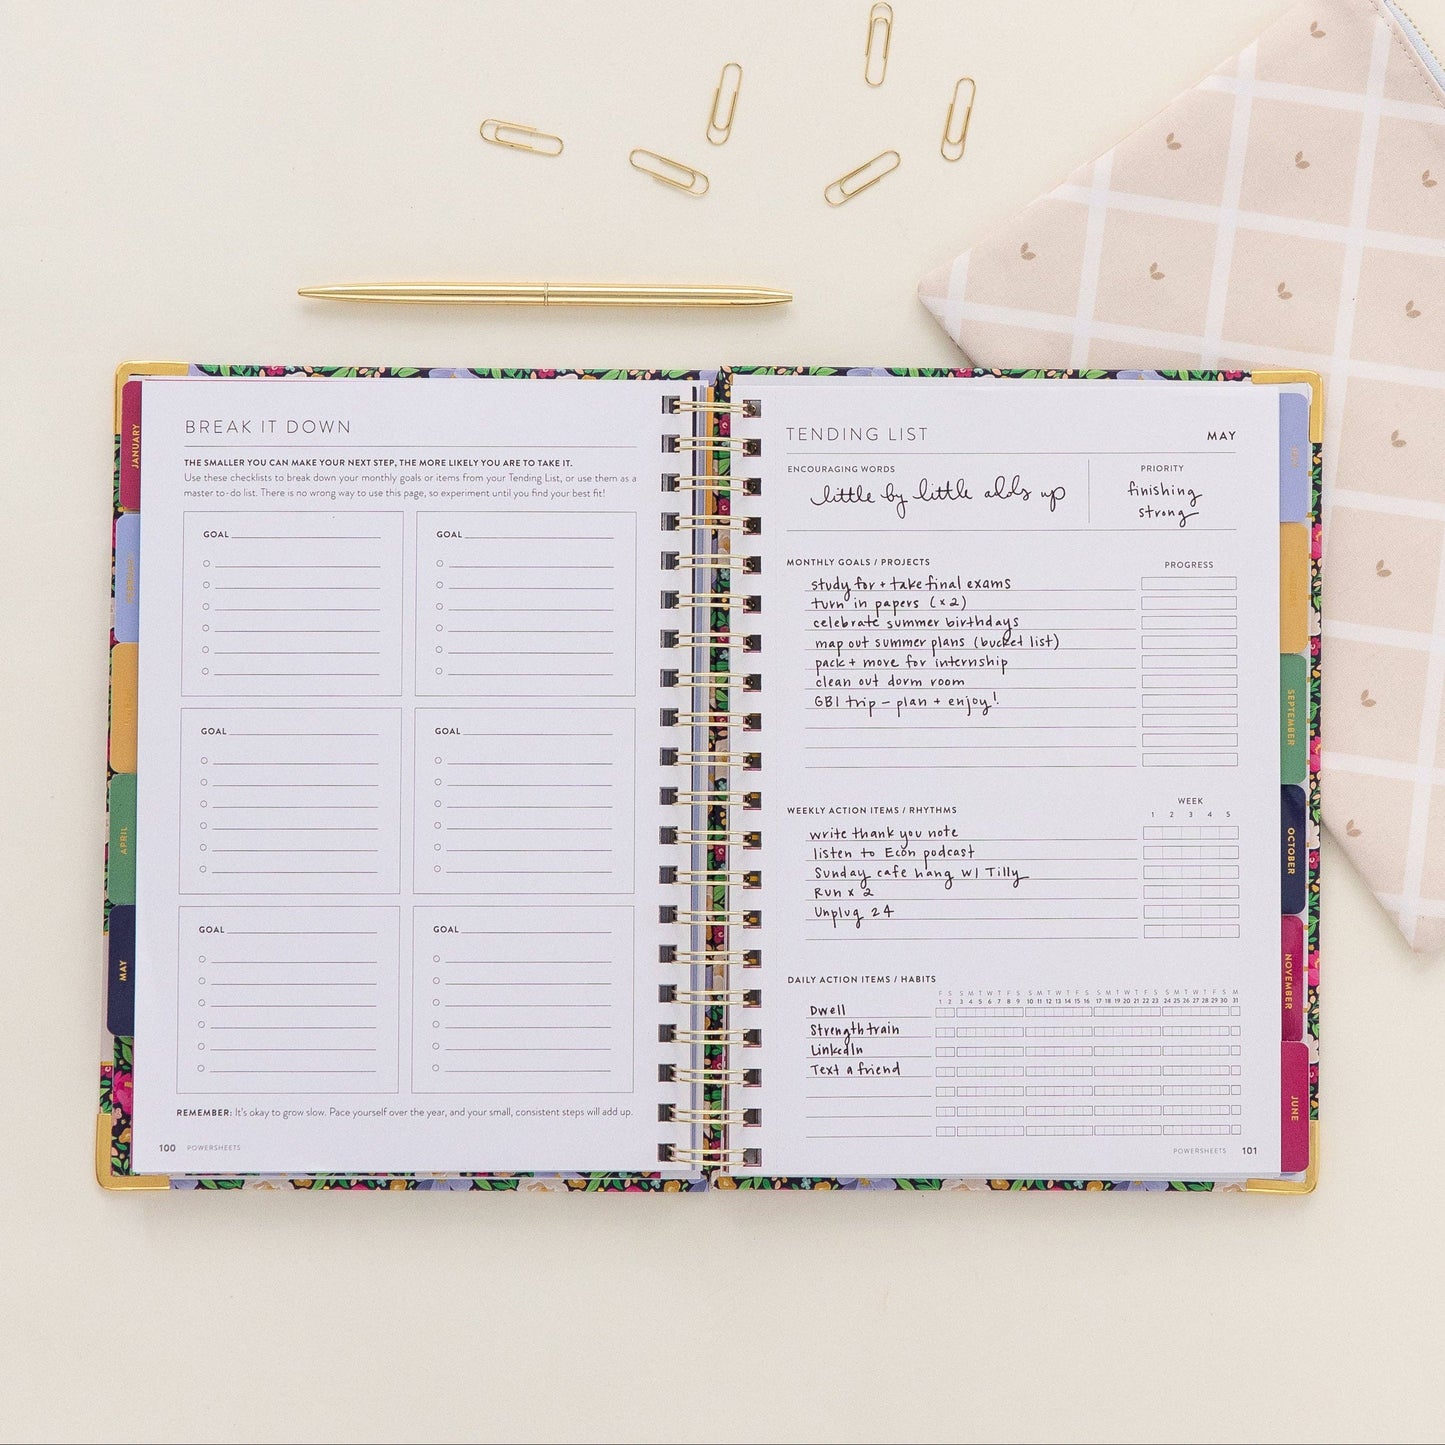 BREAK IT DOWN
THE SMALLER YOU CAN MAKE YOUR NEXT STEP, THE MORE LIKELY YOU ARE TO TAKE IT.
Use these checklists to break down your monthly goals or items from your Tending List, or use them as a
master to-do list. There is no wrong way to use this page, so experiment until you find your best fit!
GOAL
GOAL
GOAL
GOAL
GOAL
GOAL
REMEMBER: It's okay to grow slow. Pace yourself over the year, and your small, consistent steps will add up.
100 POWERSHEETS
JANUARY
APRIL
MAY
TENDING LIST
MAY
ENCOURAGING WORDS
little by little adds up
PRIORITY
finishing
strong
MONTHLY GOALS / PROJECTS
PROGRESS
study for + take final exams
turn in papers (x2)
celebrate summer birthdays
map out summer plans (bucket list)
pack + move for internship
clean out dorm room
GBI trip - plan + enjoy!
WEEKLY ACTION ITEMS / RHYTHMS
WEEK
1 2 3 4 5
write thank you note
listen to Econ podcast
Sunday cafe hang w/ Tilly
Run x 2
Unplug 24
DAILY ACTION ITEMS / HABITS
F S S M T W T F S S M T W T F S S M T W T F S S M T W T F S S M
1 2 3 4 5 6 7 8 9 10 11 12 13 14 15 16 17 18 19 20 21 22 23 24 25 26 27 28 29 30 31
Dwell
Strength train
LinkedIn
Text a friend
POWERSHEETS 101
SEPTEMBER
OCTOBER
NOVEMBER
JUNE